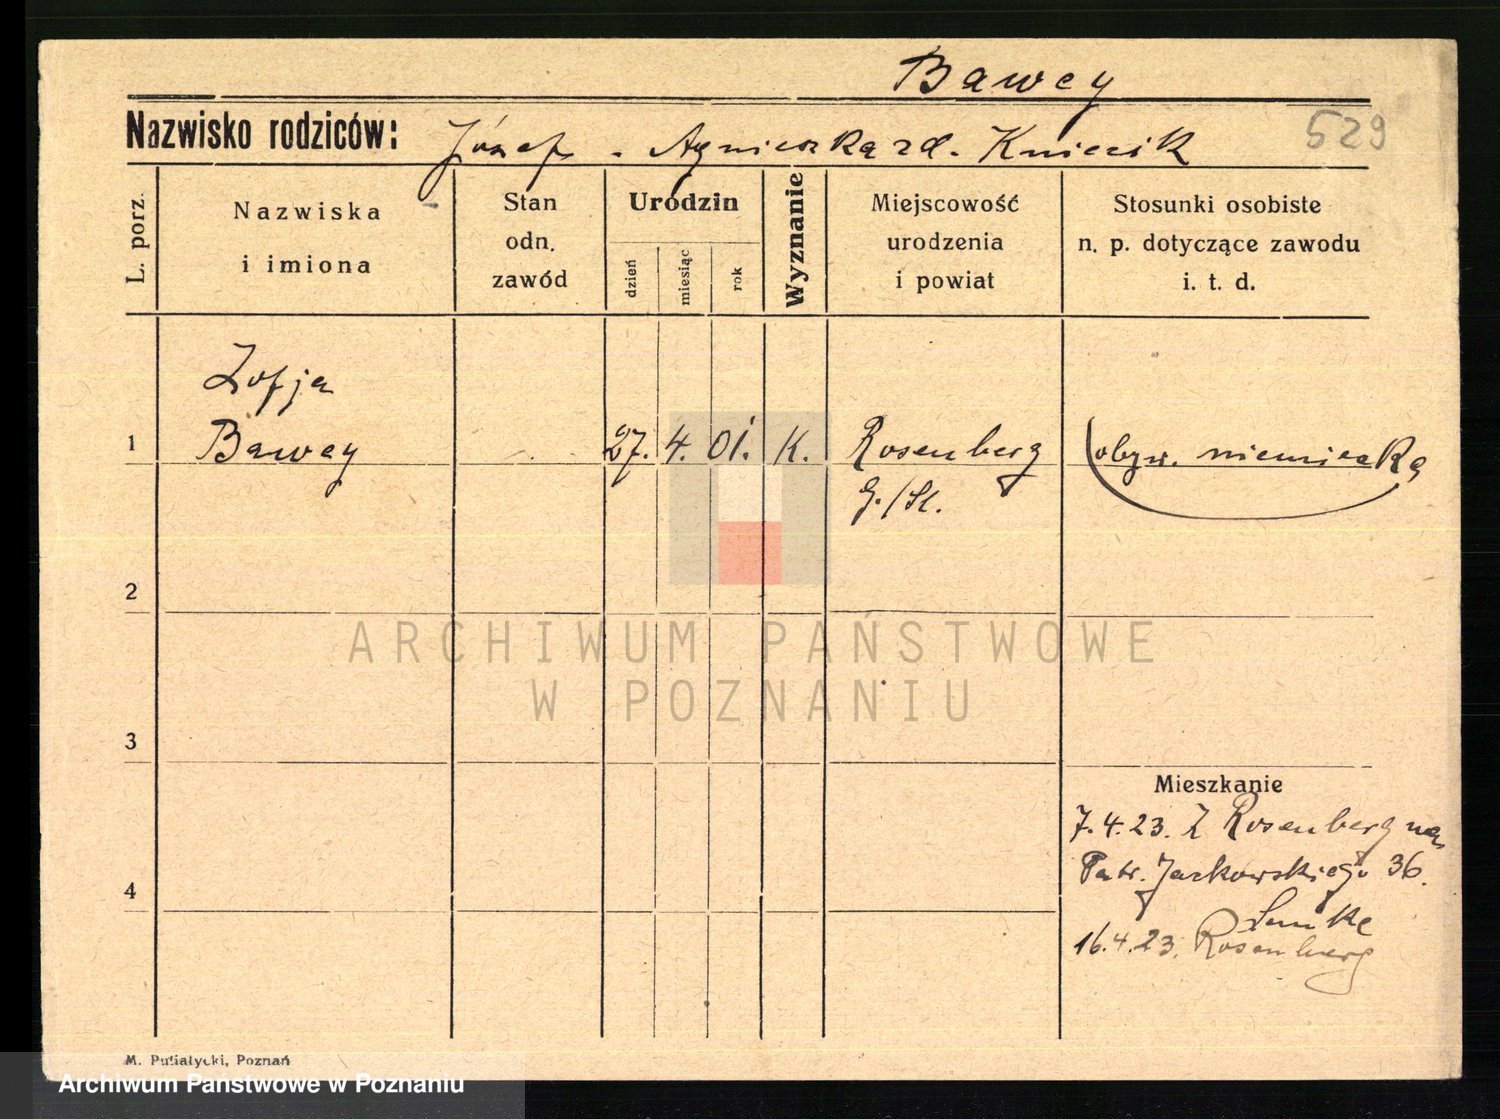 Bawey
Nazwisko rodziców: Józef . Agnieszka zd. Kniezik
529
L. porz.
Nazwiska
i imiona
Stan
odn.
zawód
Urodzin
dzień
miesiąc
rok
Wyznanie
Miejscowość
urodzenia
i powiat
Stosunki osobiste
n. p. dotyczące zawodu
i. t. d.
Zofja
1 Bawey 27. 4. 01. K. Rosenberg obyw. niemiecka
G./Sl.
2
ARCHIWUM PAŃSTWOWE
W POZNANIU
3
Mieszkanie
7.4.23. Z Rosenberg na
Patr. Jackowskiego 36.
4
16.4.23. Rosenberg
M. Putiatycki, Poznań
Archiwum Państwowe w Poznaniu